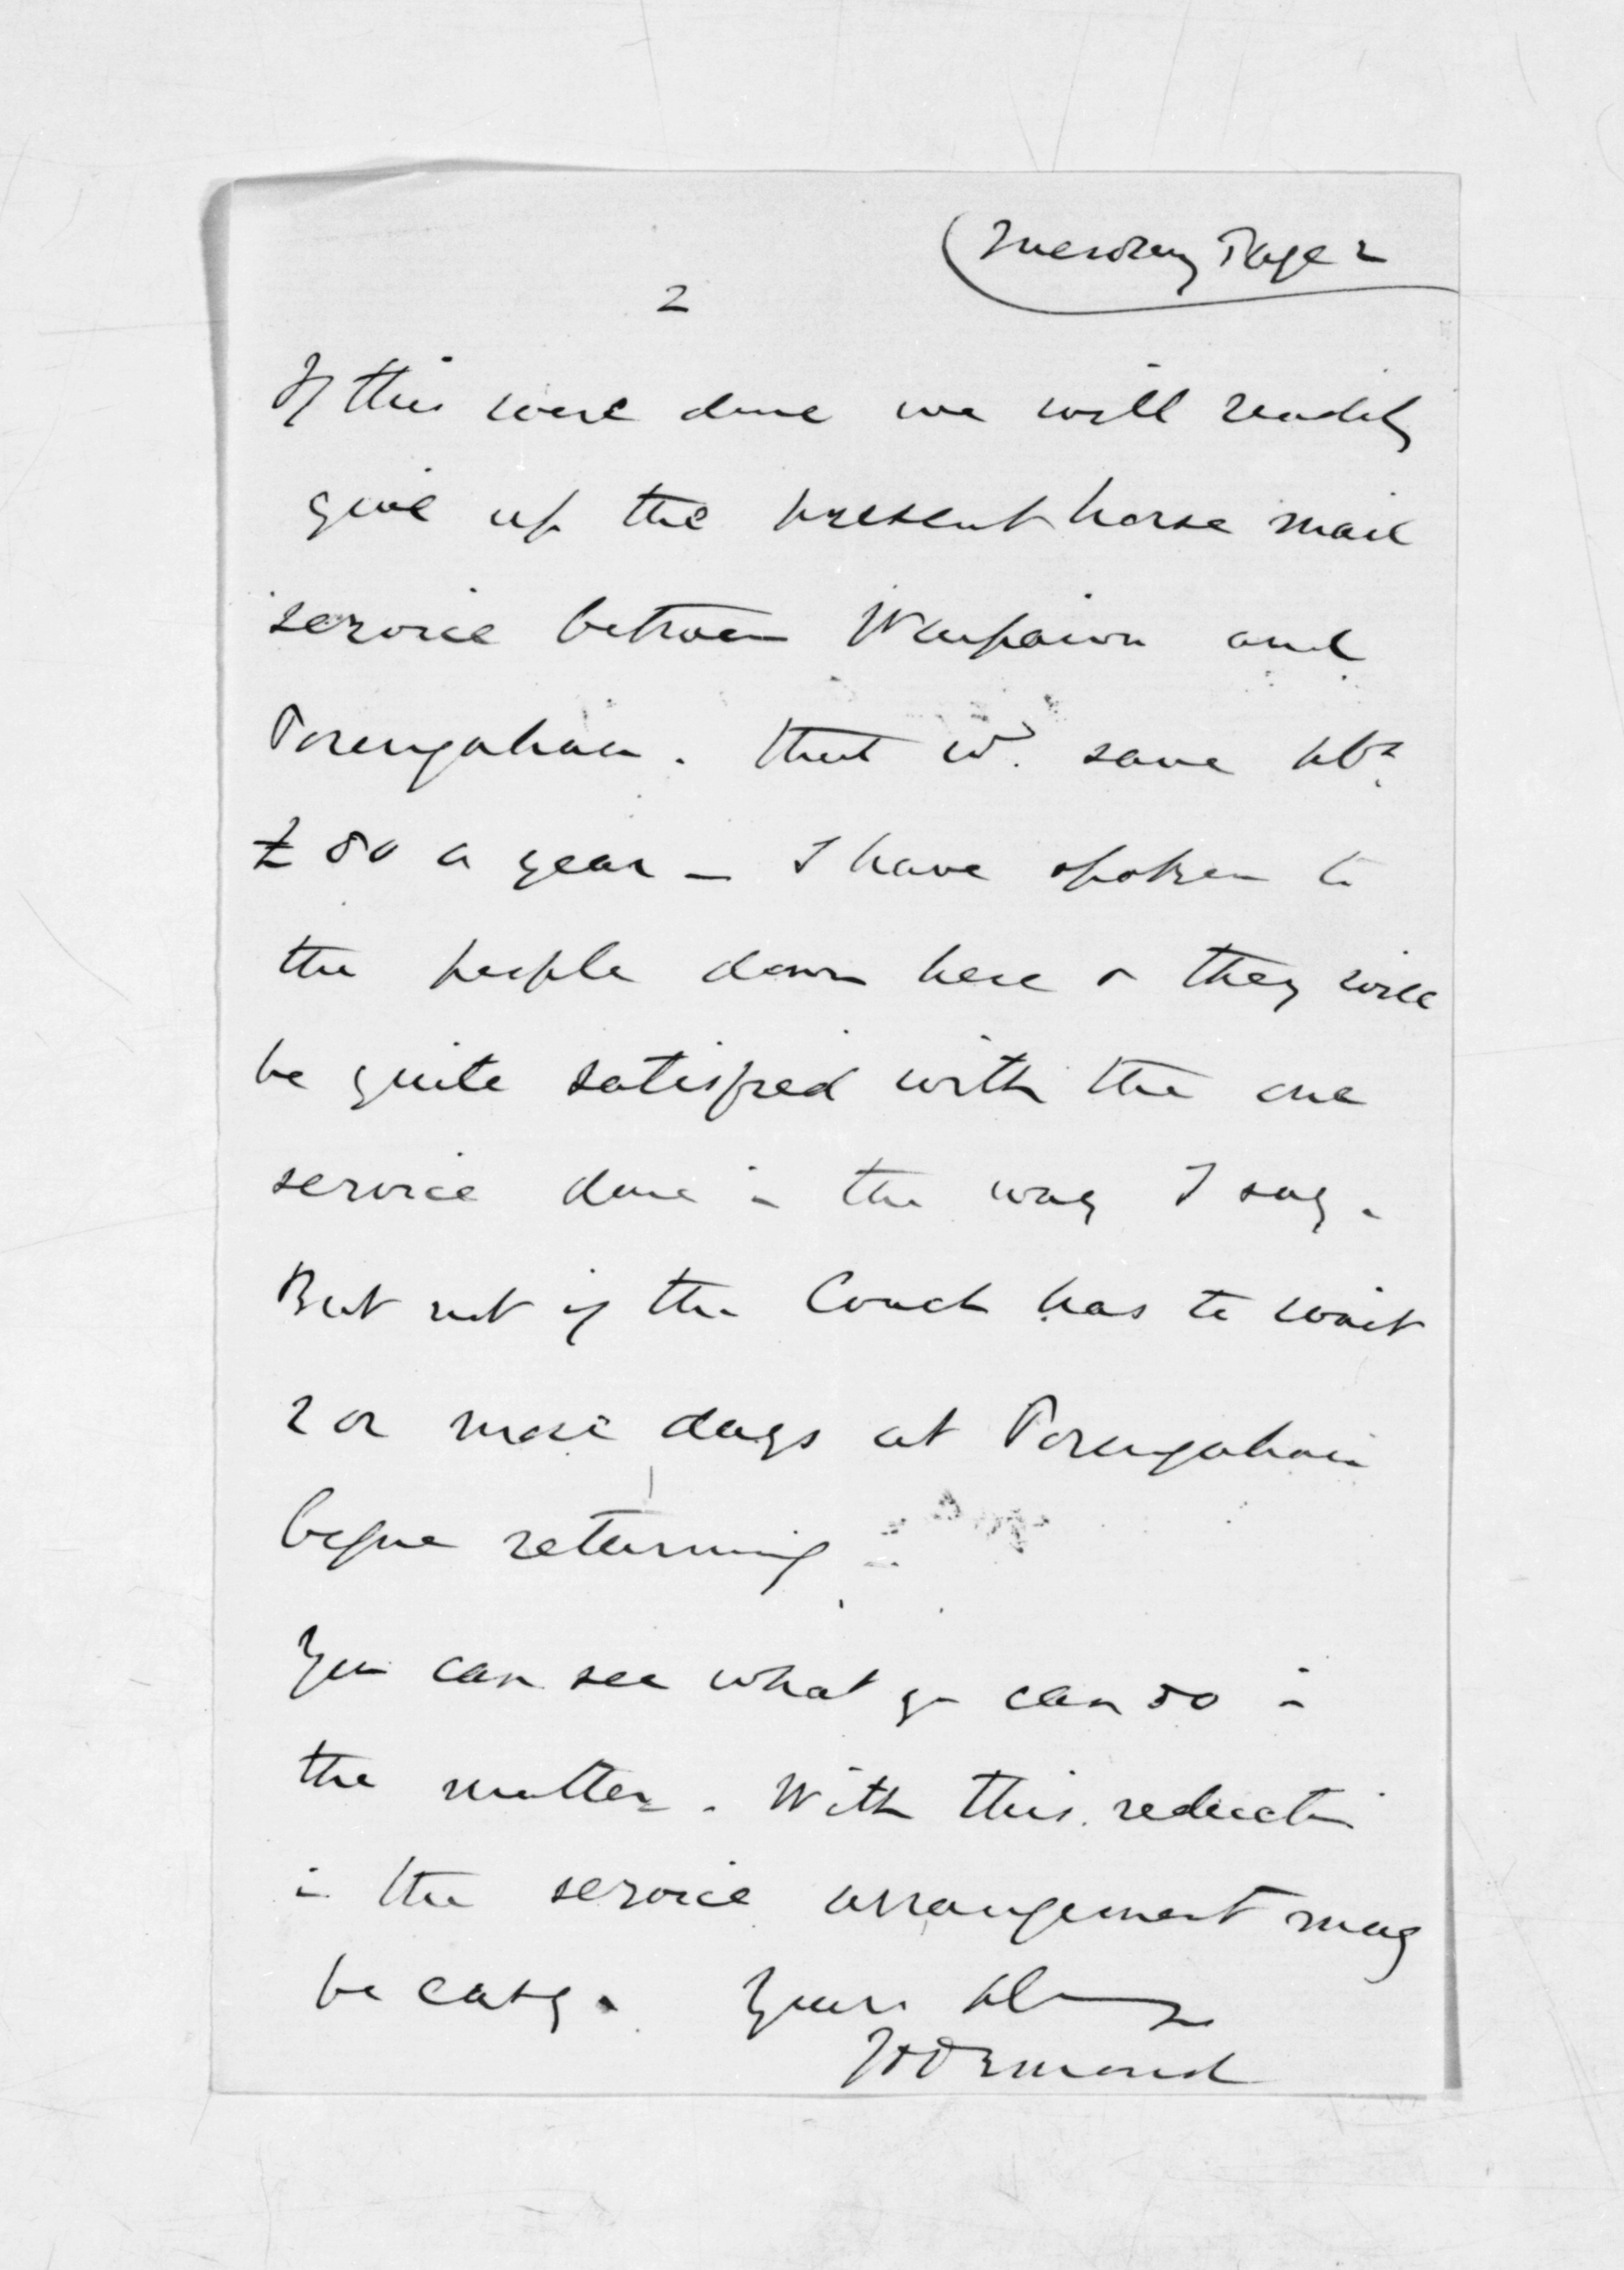 Tuesday Page 2
2
If this were done we will readily
give up the present horse mail
service between Waipawa and
Porangahau. That wd. save abt.
£80 a year – I have spoken to
the people down here & they will
be quite satisfied with the one
service done in the way I say.
But not if the Coach has to wait
2 or more days at Porangahau
before returning.
You can see what you can do in
the matter. With this reduction
in the service arrangement may
be easy. Yours
JD Ormond